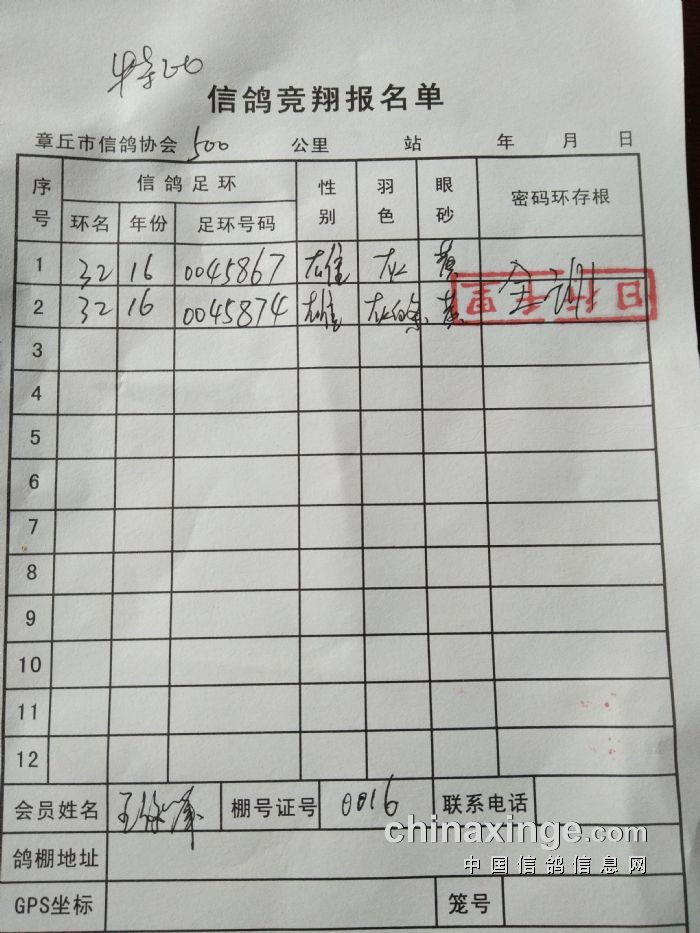 特200
信鸽竞翔报名单
章丘市信鸽协会 500 公里 站 年 月 日
序号 信鸽足环 性别 羽色 眼砂 密码环存根
环名 年份 足环号码
1 32 16 0045867 雄 灰 黄 全训
2 32 16 0045874 雄 灰白条 黄
3
4
5
6
7
8
9
10
11
12
会员姓名 王 棚号证号 0016 联系电话
鸽棚地址
GPS坐标 笼号
chinaxinge.com
中国信鸽信息网